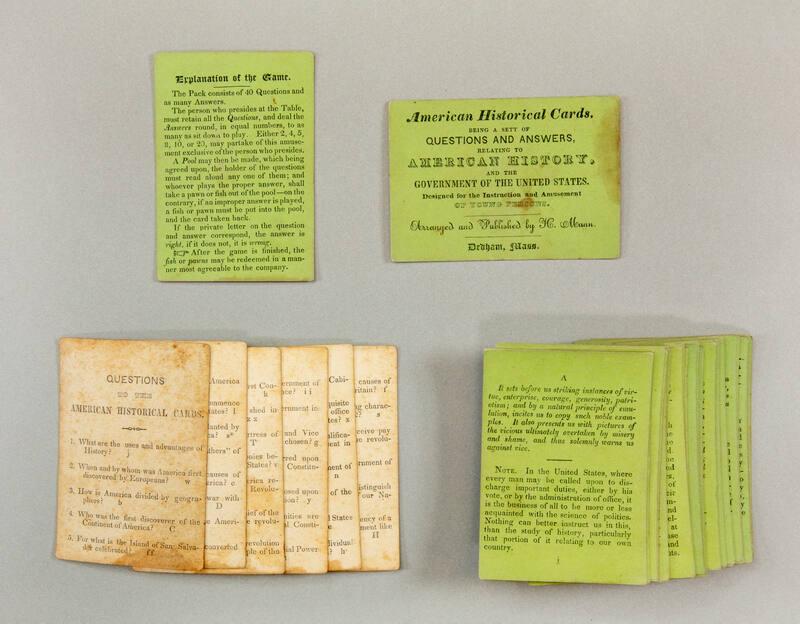 Explanation of the Game.
The Pack consists of 40 Questions and
as many Answers.
The person who presides at the Table,
must retain all the Questions, and deal the
Answers round, in equal numbers, to as
many as sit down to play. Either 2, 4, 5,
8, 10, or 20, may partake of this amuse-
ment exclusive of the person who presides.
A Pool may then be made, which being
agreed upon, the holder of the questions
must read aloud any one of them; and
whoever plays the proper answer, shall
take a pawn or fish out of the pool—on the
contrary, if an improper answer is played,
a fish or pawn must be put into the pool,
and the card taken back.
If the private letter on the question
and answer correspond, the answer is
right, if it does not, it is wrong.
☞ After the game is finished, the
fish or pawns may be redeemed in a man-
ner most agreeable to the company.
American Historical Cards.
BEING A SETT OF
QUESTIONS AND ANSWERS,
RELATING TO
AMERICAN HISTORY,
AND THE
GOVERNMENT OF THE UNITED STATES.
Designed for the Instruction and Amusement
OF YOUNG PERSONS.
Arranged and Published by H. Mann.
Dedham, Mass.
QUESTIONS
TO THE
AMERICAN HISTORICAL CARDS.
1. What are the uses and advantages of
History? j
2. When and by whom was America first
discovered by Europeans? w
3. How is America divided by geogra-
phers? b
4. Who was the first discoverer of the
Continent of America? C
5. For what is the Island of San Salva-
dor celebrated? ff
America
mmence
ates? l
anted by
a? s*
thers" of
causes of
erica? c
war with
D
e Ameri-
converted
rst Con-
h
shed in
z x
trees of
T
onies be-
States? v
erica re-
Revolu-
ief of the
e revolu-
evolution
ple of the
ernment of
nce? i i
rnment in
and Vice
chosen? g
rred upon
Constitu-
osed upon
ion? y
nities are
al Consti-
ial Power
Cabi-
quisite
office
tes? x
alifica-
ent in
ment of
n
of the
d States
e
dividual
? h
causes of
ritain? f
g charac-
s
ceive pay
e revolu-
rnment of
istinguish
our Na-
ency of a
ment like
H
A
It sets before us striking instances of vir-
tue, enterprise, courage, generosity, patri-
otism; and by a natural principle of emu-
lation, incites us to copy such noble exam-
ples. It also presents us with pictures of
the vicious ultimately overtaken by misery
and shame, and thus solemnly warns us
against vice.
NOTE. In the United States, where
every man may be called upon to dis-
charge important duties, either by his
vote, or by the administration of office, it
is the business of all to be more or less
acquainted with the science of politics.
Nothing can better instruct us in this,
than the study of history, particularly
that portion of it relating to our own
country.
j